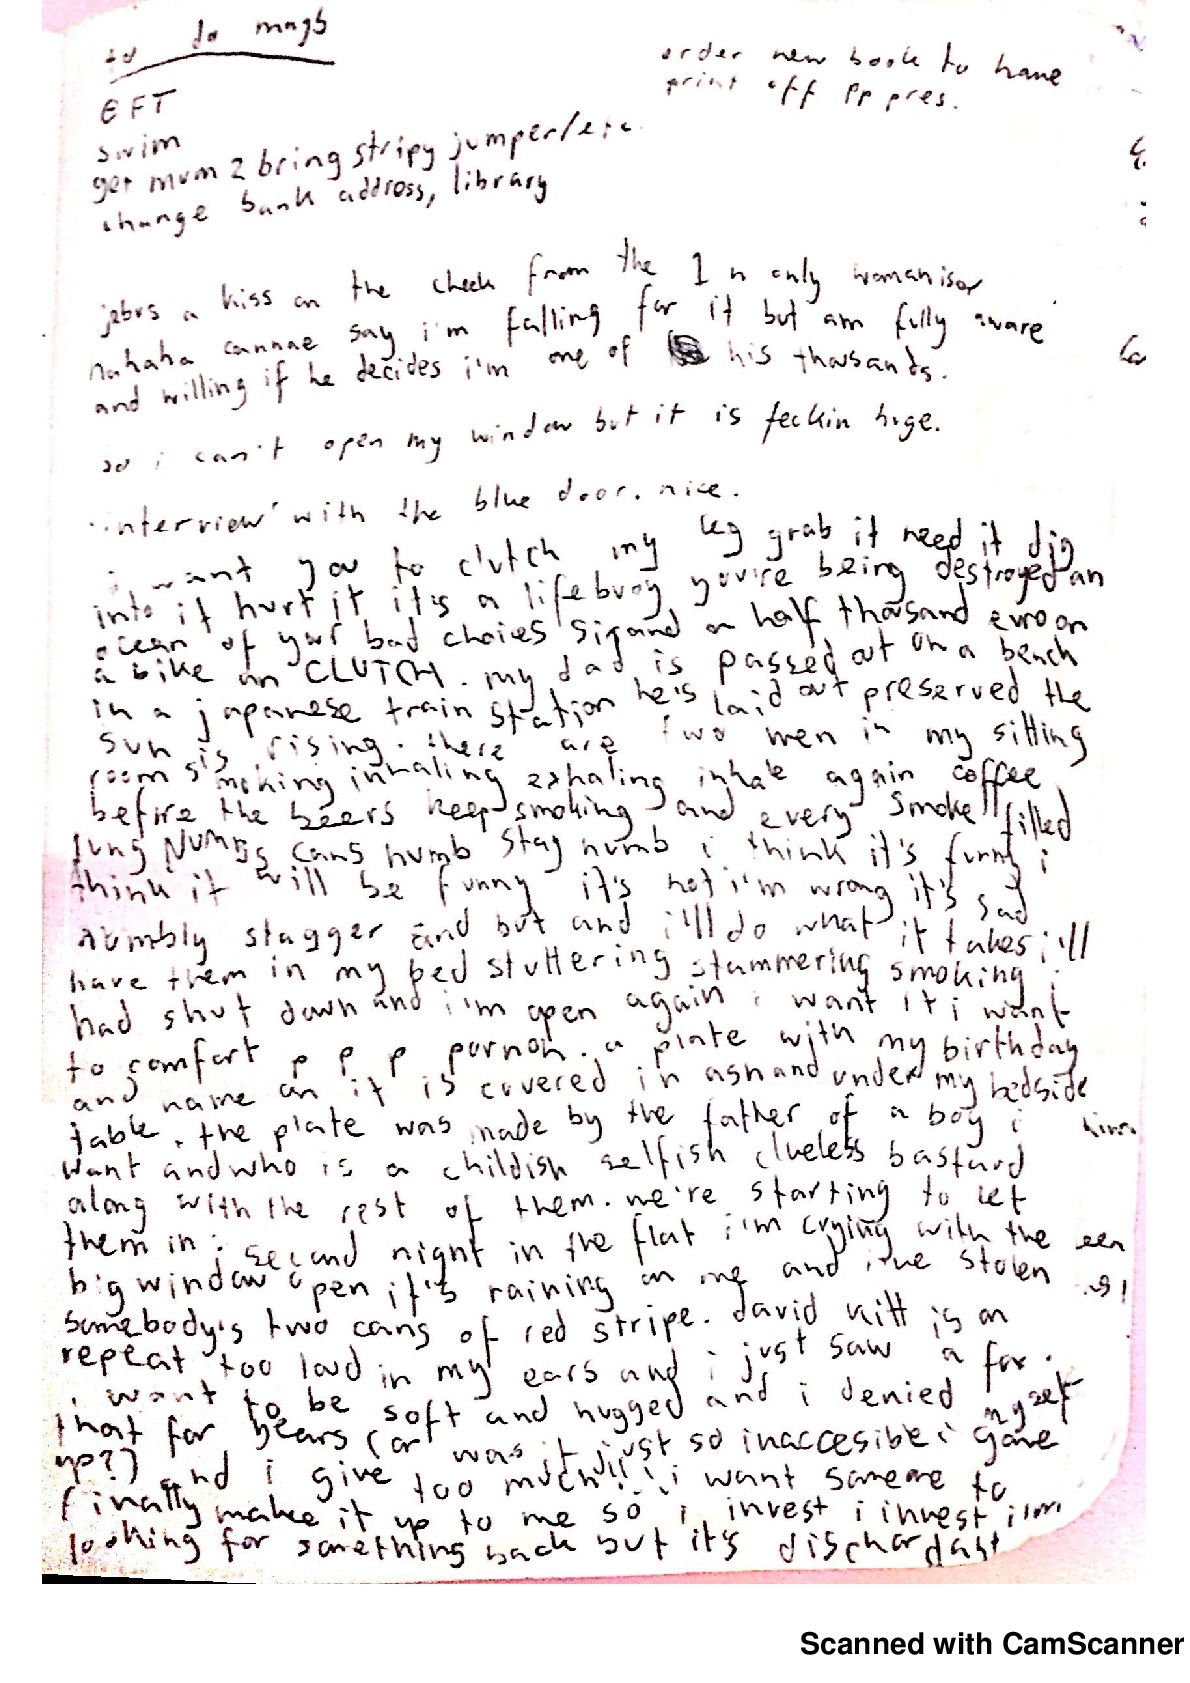 to do mngs
order new book to home
print off pp pres.
EFT
swim
get mum 2 bring stripy jumper/etc.
change bank address, library
jebus a kiss on the cheek from the 1 n only womaniser
nahaha cannae say i'm falling for it but am fully aware
and willing if he decides i'm one of his thousands.
so i can't open my window but it is feckin huge.
'interview' with the blue door. nice.
i want you to clutch my leg grab it need it dig
into it hurt it it's a lifebuoy you're being destroyed an
ocean of your bad choices half thousand euro on
a bike an CLUTCH. my dad is passed out on a bench
in a japanese train station he's laid out preserved the
sun is rising. there are two men in my sitting
room smoking inhaling exhaling inhale again coffee
before the beers keep smoking and every smoke filled
lung numbs cans numb stay numb i think it's funny i
think it will be funny it's not i'm wrong it's sad
numbly stagger and but and i'll do what it takes i'll
have them in my bed stuttering stammering smoking i
had shut down and i'm open again i want it i want
to comfort p p p pornoh. a plate with my birthday
and name on it is covered in ash and under my bedside
table. the plate was made by the father of a boy i
want and who is a childish selfish clueless bastard
along with the rest of them. we're starting to let
them in: second night in the flat i'm crying with the
big window open it's raining on me and i've stolen
somebody's two cans of red stripe. david kitt is on
repeat too loud in my ears and i just saw a fox.
i want to be soft and hugged and i denied myself
that for years (or was it just so inaccesible i gave
up?) and i give too much!!! i want someone to
finally make it up to me so i invest i invest i'm
looking for something back but it's discordant
Scanned with CamScanner